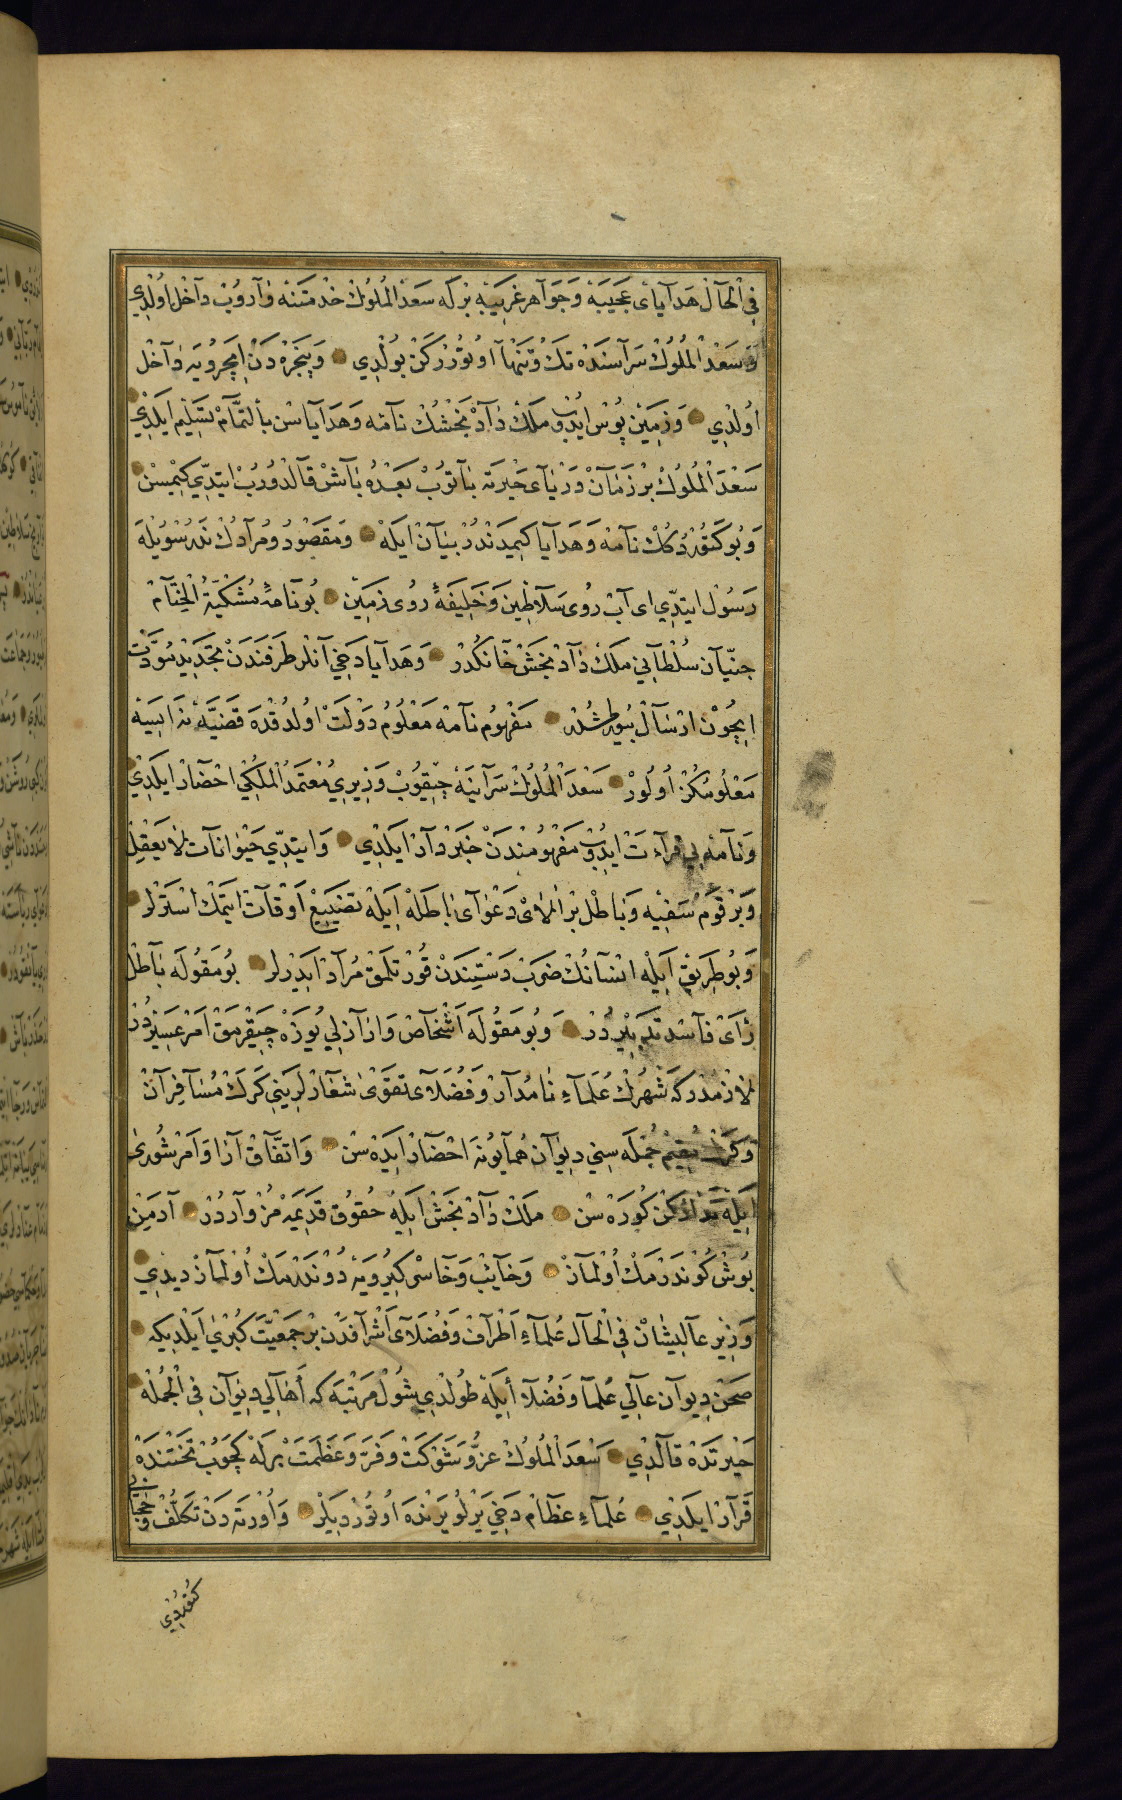 فِي الْحَالْ هَدَايَاىِ عَجَيبَهْ وَجَوَاهِر غَرِيبَهْ بِرْلَه سَعْدُ الْمُلُوكْ خِدْمَتِنَه وَارُوبْ دَاخِل اُولْدِي
وَسَعْدُ الْمُلُوكْ سَرَاسِنْدَه تَكْ وُتَنْهَا اُوتُورُرْكَنْ بُولْدِي وَپَنْجَرَه دَنْ اِيچَرُويَه دَاخِلْ
اُولْدِي وَزَمِينْ پُوسْ اِيدُوبْ مَلِكْ دَادْ بَخْشُكْ نَامَه وَهَدَايَاسِنْ بِالتَّمَامْ تَسْلِيم اَيلَدِي
سَعْدُ الْمُلُوكْ بِرْ زَمَانْ دَرْيَاىِ حَيْرَتَه بَاتُوبْ بَعْدُهُ بَاشْ قَالْدُورُبْ ايتدِّي كِيمْسِنْ
وَبُو كَتُورْدُكُكْ نَامَه وَهَدَايَا كِيمَدَنْدُرْ بَيَانْ ايَلَه وَمَقْصُود وُ مُرَادُكْ نَدُرْ سُويْلَه
رَسُول ايتدِّي اى آبِ رُوى سَلَاطِين وَخَلِيفَهٔ رُوى زَمِينْ بُو نَامَهٔ مُشْكِيَّةُ الْخِتَامْ
جِنِّيَانْ سُلْطَانِي مَلِكْ دَادْ بَخْشْ خَانْكُدُرْ وَهَدَايَا دَخِي آنْلَرْ طَرَفِنْدَنْ تَجْدِيدِ مَوَدَّتْ
اِيچُونْ اِرْسَالْ بُيُورِلْمُشْدُرْ مَفْهُومِ نَامَه مَعْلُومِ دَوْلَتْ اُولْدُقْدَه قَضِيَّه نَه ايسَه
مَعْلُومُكُزْ اُولُورْ سَعْدُ الْمُلُوكْ سَرَايَنَه چِيقُوبْ وَزِيرِي مُعْتَمَدُ الْمُلْكِي اِحْضَارْ ايلَدِي
وَنَامَه يِي قِرَاءَتْ ايدُوبْ مَفْهُومِنْدَنْ خَبَرْدَارْ ايلَدِي وَايتدِّي حَيْوَانَاتِ لَا يَعْقِلْ
وَبِرْ قَوْمِ سَفِيه وَبَاطِلْ بِزْ انْلَرْ دَعْوَاىِ بَاطِلَه ايلَه تَضْيِيعِ اَوْقَاتْ ايتْمَكْ اِسْتَرْلَرْ
وَبُو طَرِيقِ ايلَه اِنْسَانُكْ ضَرْبِ دَسْتِنْدَنْ قُورْتُلْمَقْ مُرَادْ ايدَرْلَرْ بُو مَقُولَه بَاطِلْ
رَاىْ فَاسِدْ تَدْبِيرْدُرْ وَبُو مَقُولَه اَشْخَاصْ وَارَاذِلِي يُوزَه چِيقَرْمَقْ اَمْرِ عَسِيرْدُرْ
لَازِمْدُرْكَه شَهْرُكْ عُلَمَاءِ نَامْدَارْ وَفُضَلَاىِ تَقْوَى شِعَارْلَرِينِي كَرَكْ مُسَافِرَانْ
وَكَرَكْ مُقِيمْ جُمْلَه سِنِي دِيوَانِ هُمَايُونَه اِحْضَارْ ايدَه سِنْ وَاتِّفَاقِ آرَا وَامْرِ شُورَى
ايلَه تَدَارُكِنْ كُورَه سِنْ مَلِكْ دَادْ بَخْشْ ايلَه حُقُوقِ قَدِيمَه مُزْ وَارْدُرْ آدَمِينْ
بُوشْ كُونْدَرْمَكْ اُولْمَازْ وَخَايِبْ وَخَاسِرْ كِيرُويَه دُونْدَرْمَكْ اُولْمَازْ دِيدِي
وَزِيرِ عَالِيشَانْ فِي الْحَالْ عُلَمَاءِ اَطْرَافْ وَفُضَلَاىِ اَشْرَافْدَنْ بِرْ جَمْعِيَّتِ كُبْرَى اَيْلَدِيكِه
صَحْنِ دِيوَانِ عَالِي عُلَمَا وَفُضَلَا ايلَه طُولْدِي شُولْ مَرْتَبَه كَه اَهَالِي دِيوَانْ فِي الْجُمْلَه
حَيْرَتْدَه قَالْدِي سَعْدُ الْمُلُوكْ عِزُّ وَشَوْكَتْ وَفَرّ وَعَظَمَتْ بِرْلَه كَچُوبْ تَخْتِنْدَه
قَرَارْ ايلَدِي عُلَمَاءِ عِظَامْ دَخِي يَرْلُو يَرِنْدَه اُوتُورْدِيلَرْ وَاُورْتَه دَنْ تَكَلُّفْ وَحِجَابِي
كُتُورْدِي